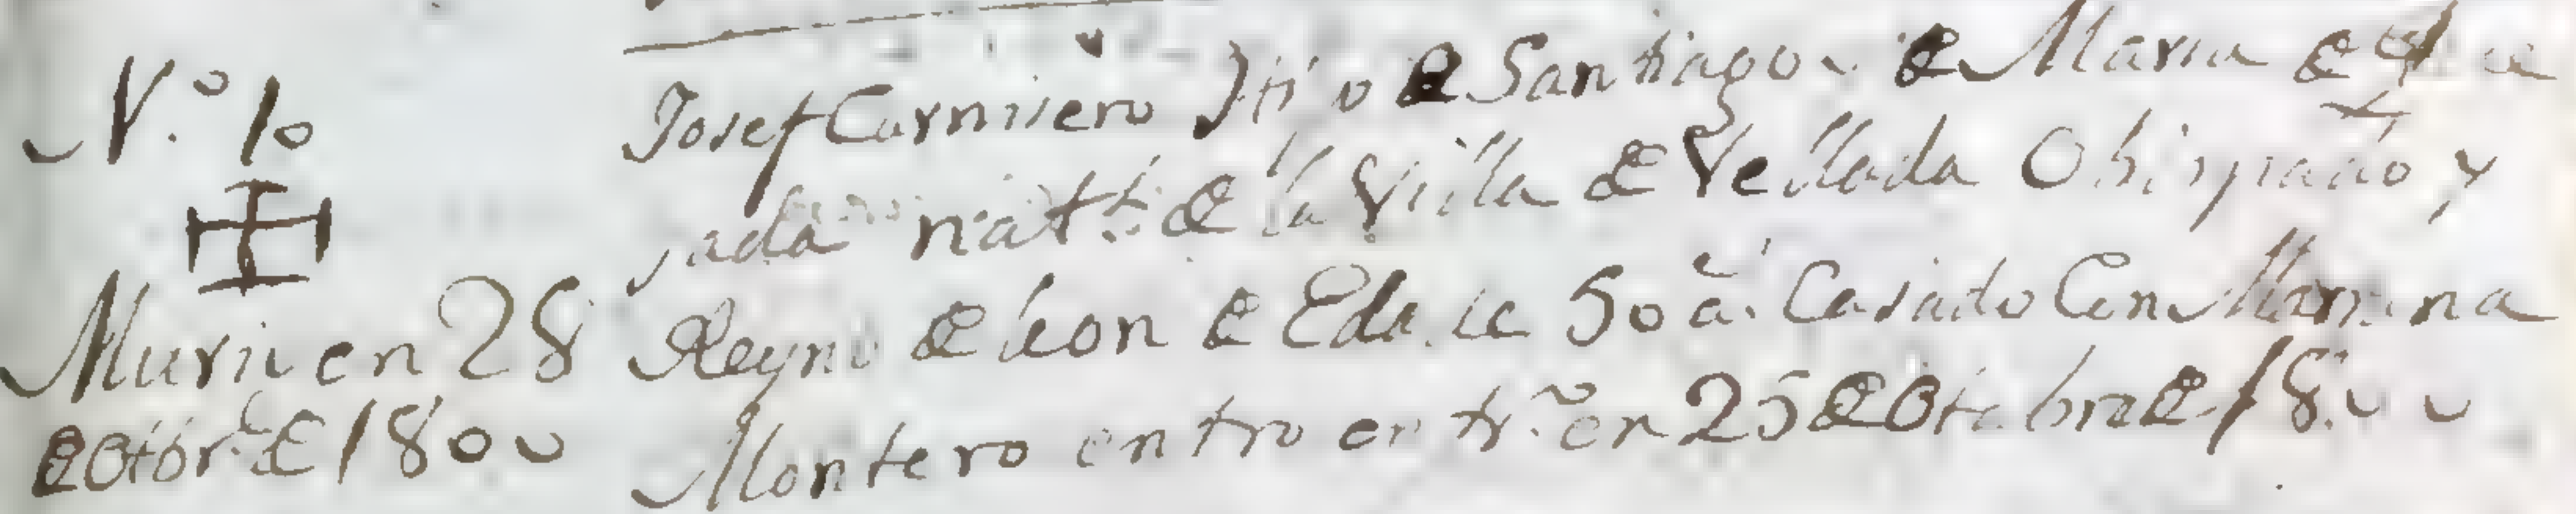 N.º 10
Murio en 28
de Otbr.e de 1800
Josef Carnisero Hijo de Santiago de Maria
natl. de la Villa de Vellada Obispado y
Reyno de Leon de Edad de 50 a.s Casado Con Mariana
Montero entro en tr.ª en 25 de Otubre de 1800